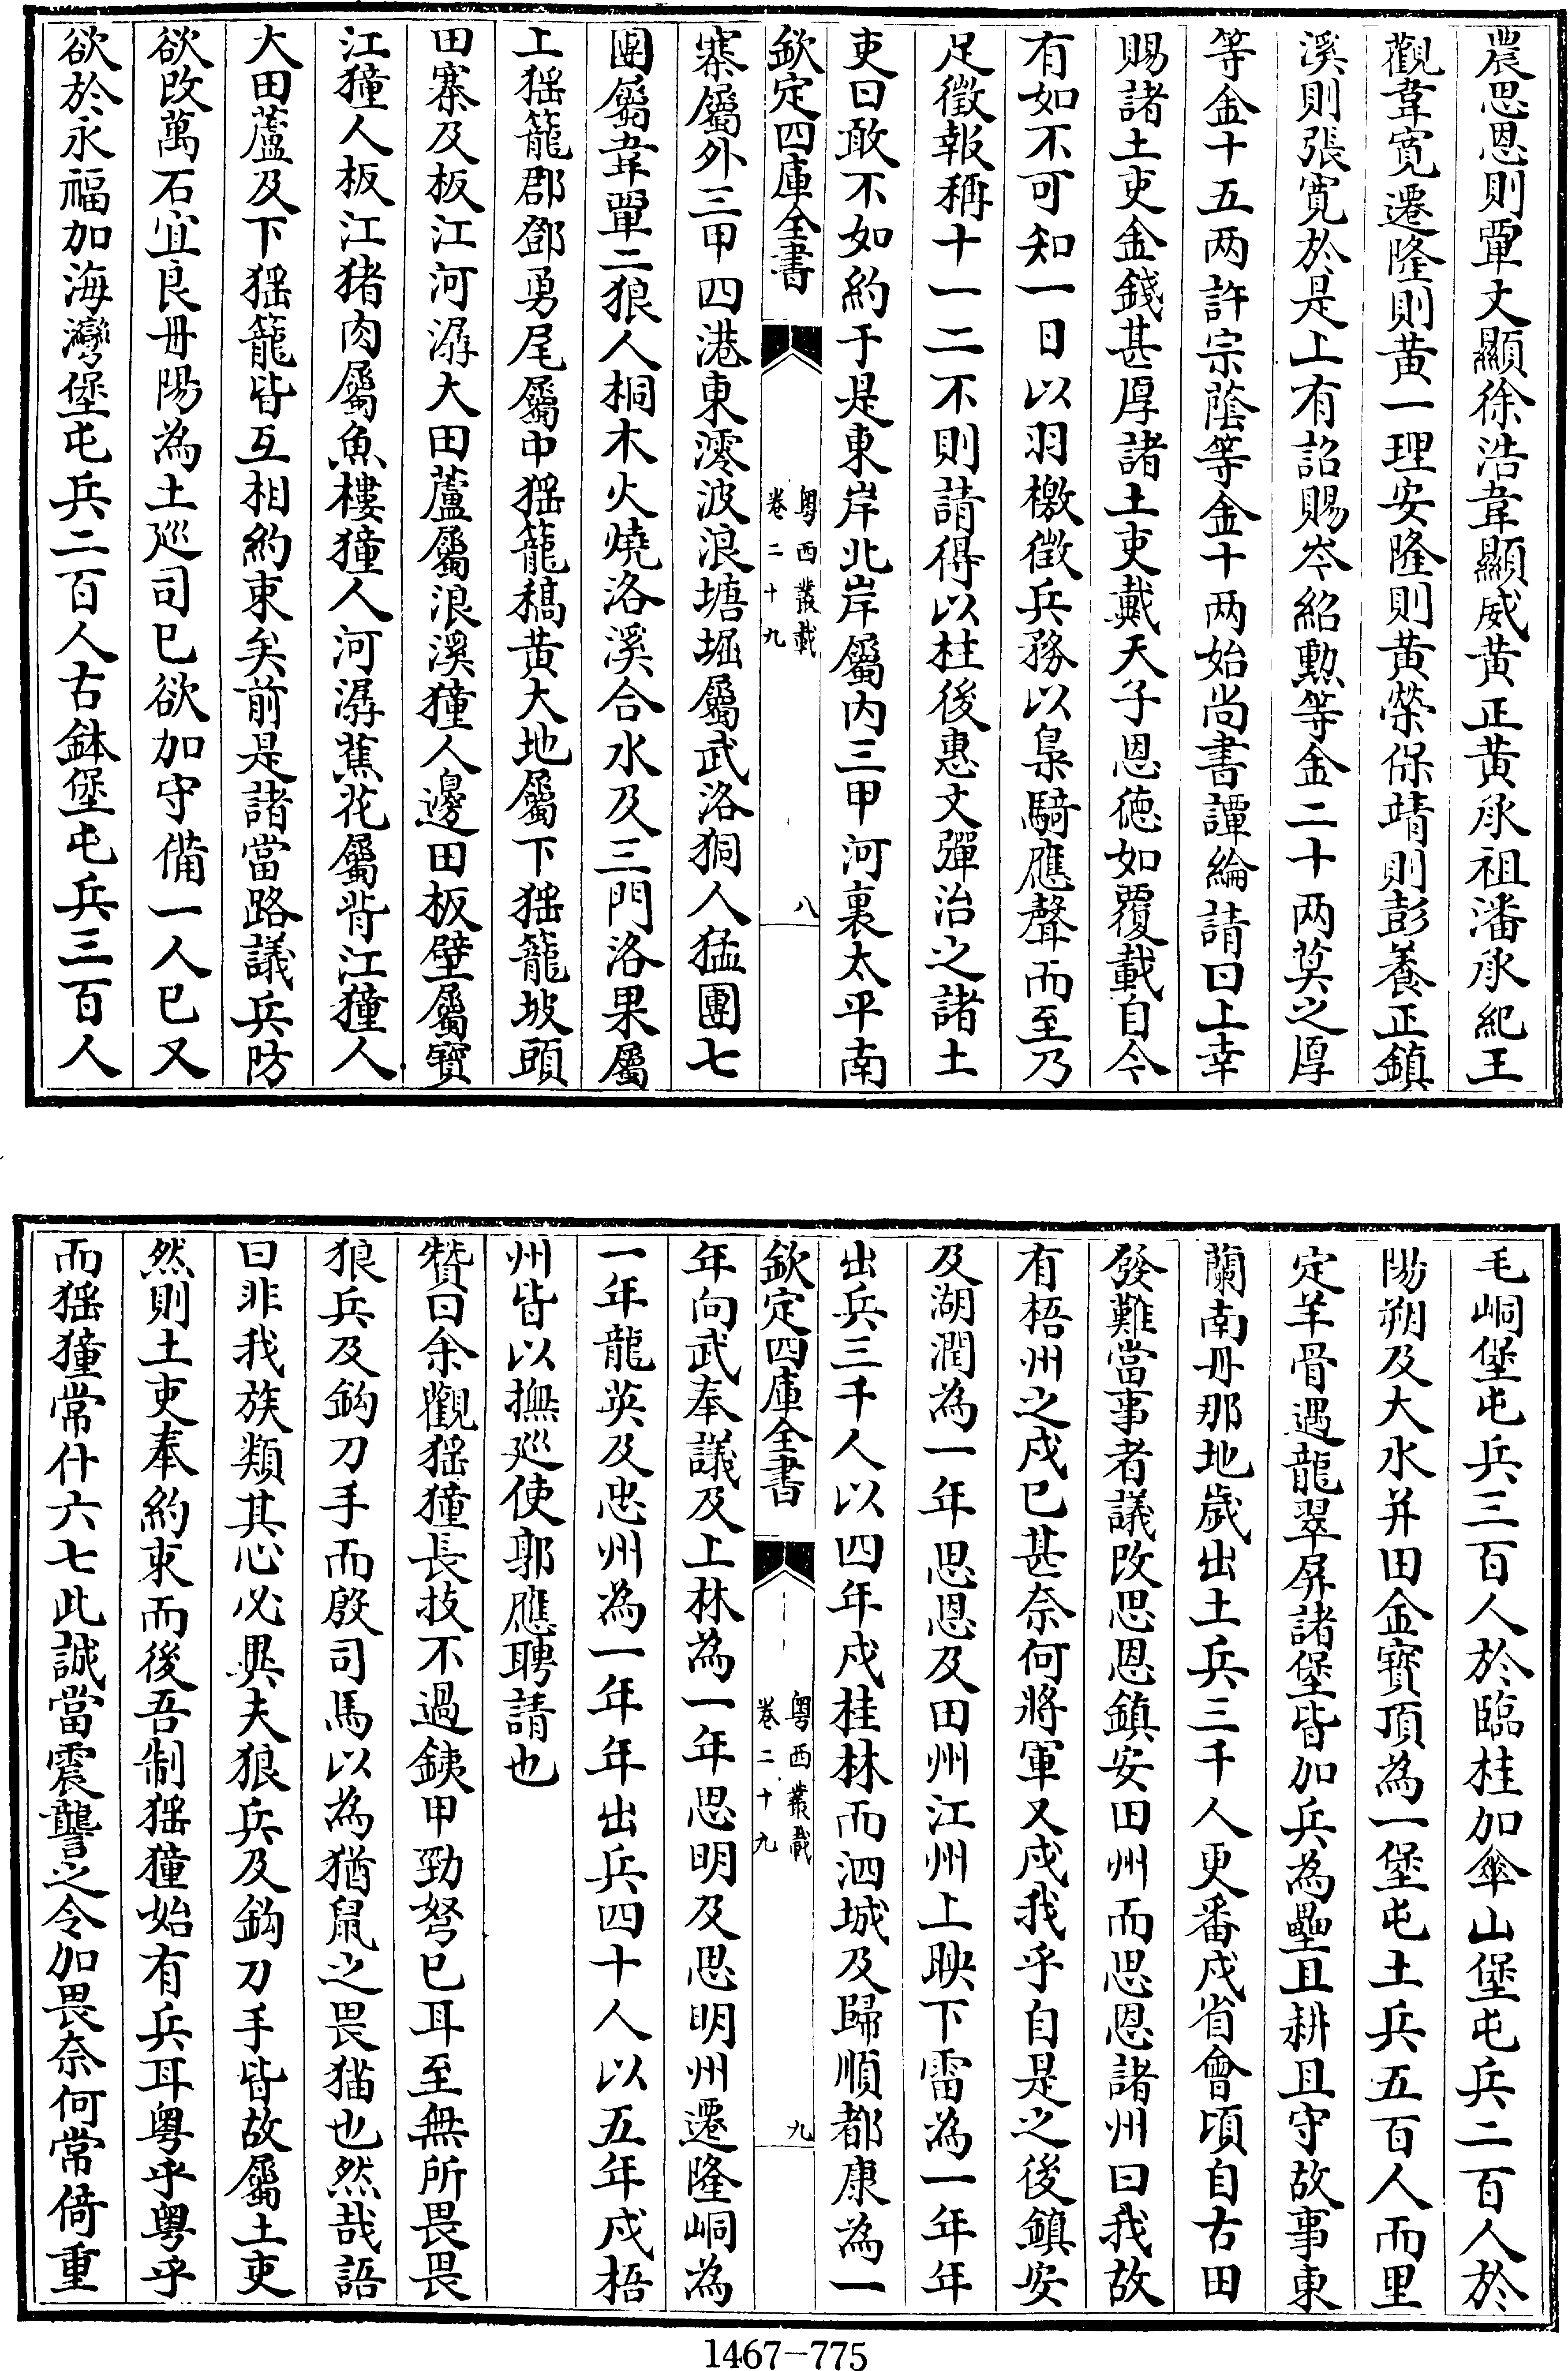 農思恩則覃文顯徐浩韋顯威黄正黄承祖潘承紀王
觀韋寛遷隆則黄一理安隆則黄榮保靖則彭養正鎮
溪則張寛於是上有詔賜岑紹勲等金二十两莫之厚
等金十五两許宗蔭等金十两始尚書譚綸請曰上幸
賜諸土吏金錢甚厚諸土吏戴天子恩徳如覆載自今
有如不可知一日以羽檄徴兵務以梟騎應聲而至乃
足徴報稱十一二不則請得以柱後惠文彈治之諸土
吏曰敢不如約于是東岸北岸屬内三甲河裏太平南
欽定四庫全書
粤西叢載
卷二十九
八
寨屬外三甲四港東澪波浪塘堀屬武洛狪人猛團七
團屬韋單二狼人桐木火燒洛溪合水及三門洛果屬
上猺籠郡鄧勇尾屬中猺籠稿黄大地屬下猺籠坡頭
田寨及板江河潺大田蘆屬浪溪獞人邊田板壁屬寳
江獞人板江猪肉屬魚樓獞人河潺蕉花屬背江獞人
大田蘆及下猺籠皆互相約束矣前是諸當路議兵防
欲改萬石宜良毋陽為土廵司已欲加守備一人已又
欲於永福加海灣堡屯兵二百人古鉢堡屯兵三百人
毛峒堡屯兵三百人於臨桂加傘山堡屯兵二百人於
陽朔及大水并田金寳頂為一堡屯土兵五百人而里
定羊骨遇龍翠屏諸堡皆加兵為壘且耕且守故事東
蘭南丹那地歳出土兵三千人更番戍省會頃自古田
發難當事者議改思恩鎮安田州而思恩諸州曰我故
有梧州之戍已甚奈何將軍又戍我乎自是之後鎮安
及湖潤為一年思恩及田州江州上映下雷為一年年
出兵三千人以四年戍桂林而泗城及歸順都康為一
欽定四庫全書
粤西叢載
卷二十九
九
年向武奉議及上林為一年思明及思明州遷隆峒為
一年龍英及忠州為一年年出兵四十人以五年戍梧
州皆以撫廵使郭應聘請也
贊曰余觀猺獞長技不過銕甲勁弩已耳至無所畏畏
狼兵及鈎刀手而殷司馬以為猶鼠之畏猫也然哉語
曰非我族類其心必異夫狼兵及鈎刀手皆故屬土吏
然則土吏奉約束而後吾制猺獞始有兵耳粤乎粤乎
而猺獞常什六七此誠當震讋之令加畏奈何常倚重
1467-775